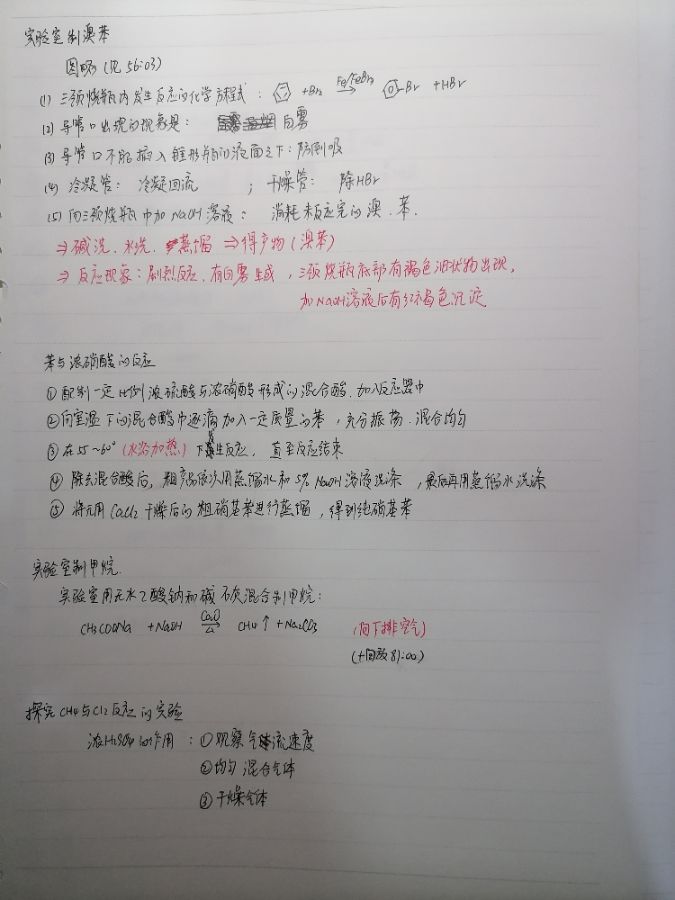 实验室制溴苯
图略(见 56:03)
(1) 三颈烧瓶内发生反应的化学方程式: +Br₂ Fe/FeBr₃ → -Br +HBr
(2) 导管口出现的现象是: 白雾
(3) 导管口不能插入锥形瓶的液面之下:防倒吸
(4) 冷凝管: 冷凝回流 ; 干燥管: 除HBr
(5) 向三颈烧瓶中加NaOH溶液: 消耗未反应完的溴、苯.
⇒ 碱洗、水洗、蒸馏 ⇒得产物(溴苯)
⇒ 反应现象:剧烈反应,有白雾生成,三颈烧瓶底部有褐色油状物出现,
加NaOH溶液后有红褐色沉淀
苯与浓硝酸的反应
①配制一定比例浓硫酸与浓硝酸形成的混合酸,加入反应器中
②向室温下的混合酸中逐滴加入一定质量的苯,充分振荡、混合均匀
③ 在55~60° (水浴加热) 下发生反应, 直至反应结束
④ 除去混合酸后,粗产品依次用蒸馏水和5% NaOH溶液洗涤,最后再用蒸馏水洗涤
⑤ 将无用CaCl₂干燥后的粗硝基苯进行蒸馏,得到纯硝基苯
实验室制甲烷.
实验室用无水乙酸钠和碱石灰混合制甲烷:
CH₃COONa +NaOH CaO △ → CH₄↑+Na₂CO₃ (向下排空气)
81:00)
探究CH₄与Cl₂反应的实验
浓H₂SO₄ 的作用 : ①观察气体流速度
②均匀混合气体
③干燥气体